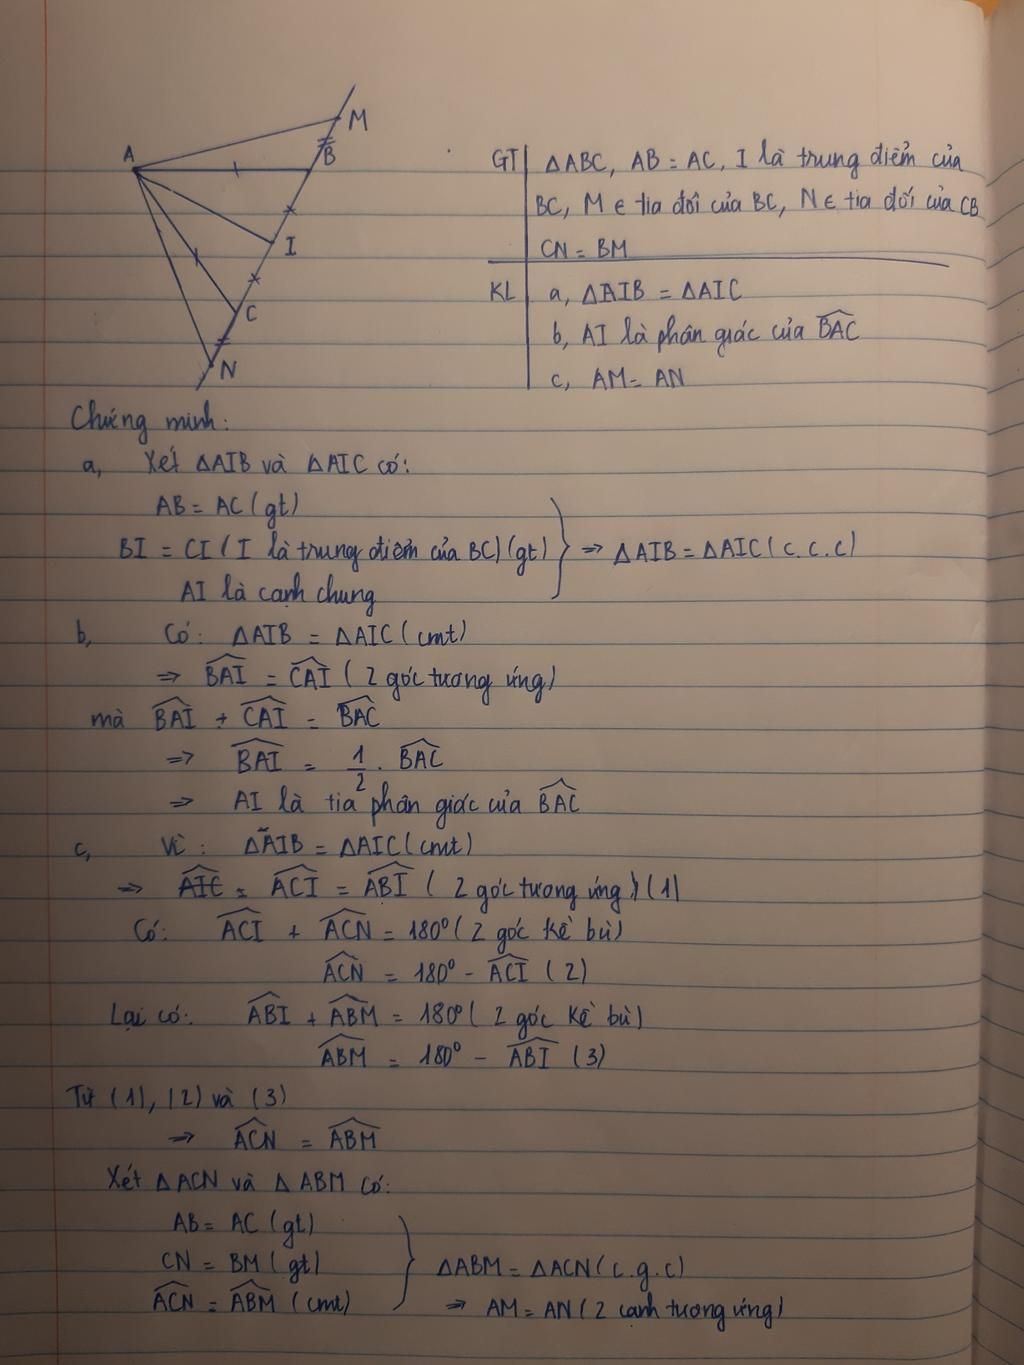 A
M
B
I
C
N
GT ΔABC, AB = AC, I là trung điểm của
BC, M ∈ tia đối của BC, N ∈ tia đối của CB
CN = BM
KL a, ΔAIB = ΔAIC
b, AI là phân giác của \widehat{BAC}
c, AM = AN
Chứng minh:
a, Xét ΔAIB và ΔAIC có:
AB = AC (gt)
BI = CI ( I là trung điểm của BC) (gt) } => ΔAIB = ΔAIC ( c.c.c)
AI là cạnh chung
b, Có: ΔAIB = ΔAIC (cmt)
=> \widehat{BAI} = \widehat{CAI} ( 2 góc tương ứng)
mà \widehat{BAI} + \widehat{CAI} = \widehat{BAC}
=> \widehat{BAI} = \frac{1}{2} . \widehat{BAC}
=> AI là tia phân giác của \widehat{BAC}
c, Vì: ΔAIB = ΔAIC (cmt)
=> \widehat{AIC} = \widehat{ACI} = \widehat{ABI} ( 2 góc tương ứng) (1)
Có: \widehat{ACI} + \widehat{ACN} = 180° ( 2 góc kề bù)
\widehat{ACN} = 180° - \widehat{ACI} (2)
Lại có: \widehat{ABI} + \widehat{ABM} = 180° ( 2 góc kề bù)
\widehat{ABM} = 180° - \widehat{ABI} (3)
Từ (1), (2) và (3)
=> \widehat{ACN} = \widehat{ABM}
Xét ΔACN và ΔABM có:
AB = AC (gt)
CN = BM (gt) } ΔABM = ΔACN ( c.g.c)
\widehat{ACN} = \widehat{ABM} (cmt) => AM = AN ( 2 cạnh tương ứng)